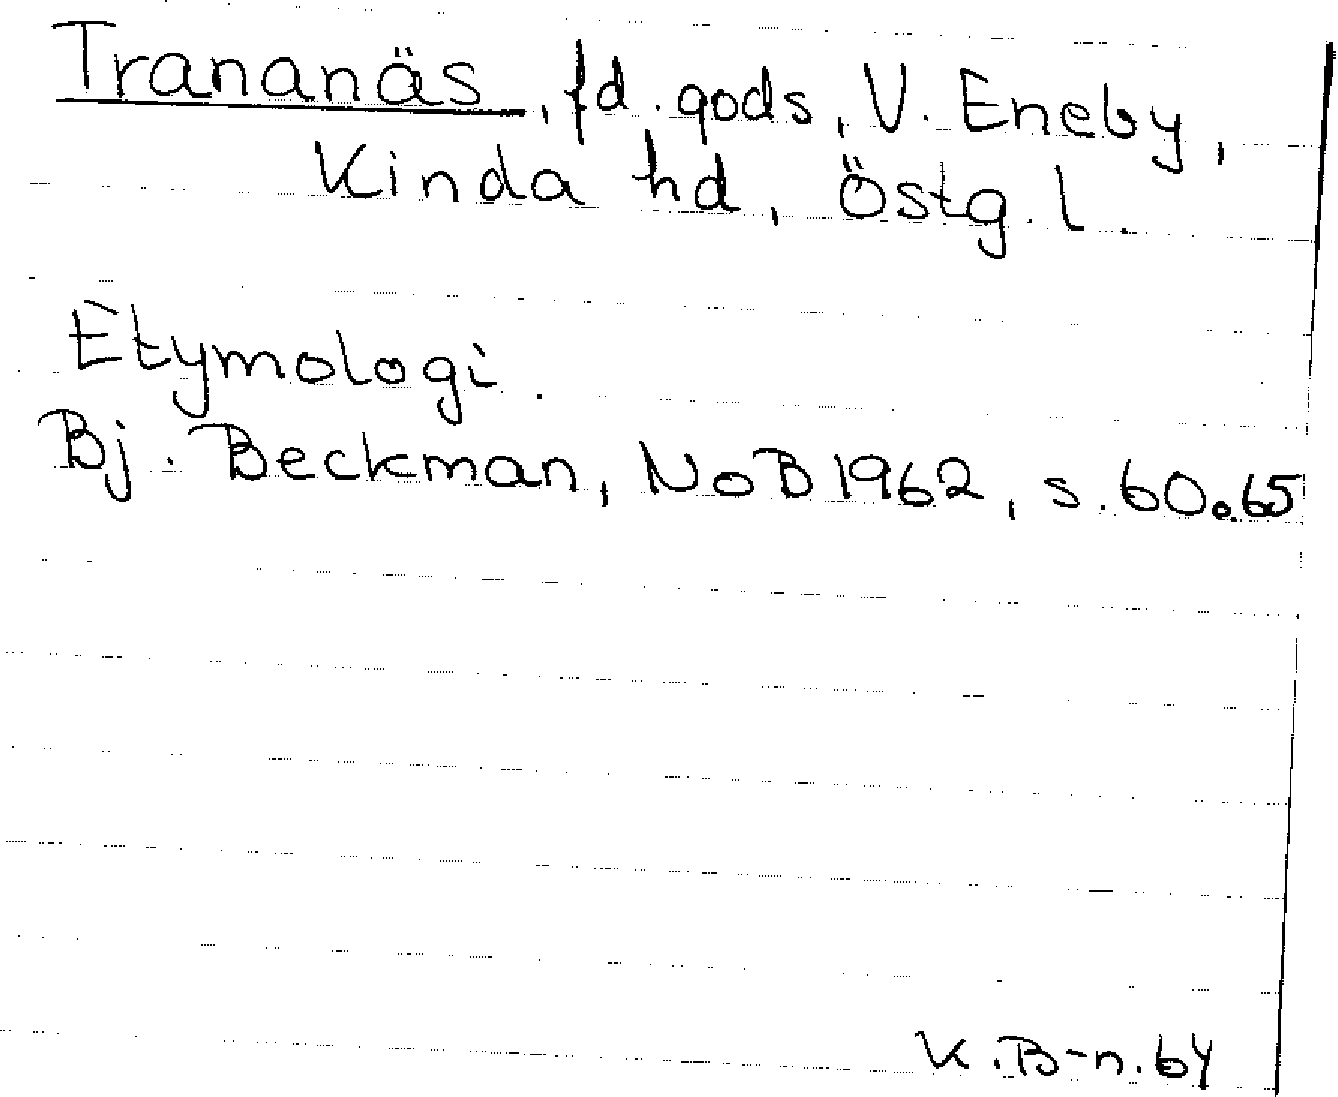 Trananäs, fd. gods, V. Eneby,
Kinda hd, Östg. l.
Etymologi.
Bj. Beckman, NoB 1962, s. 60 o. 65
K. B-n. 64